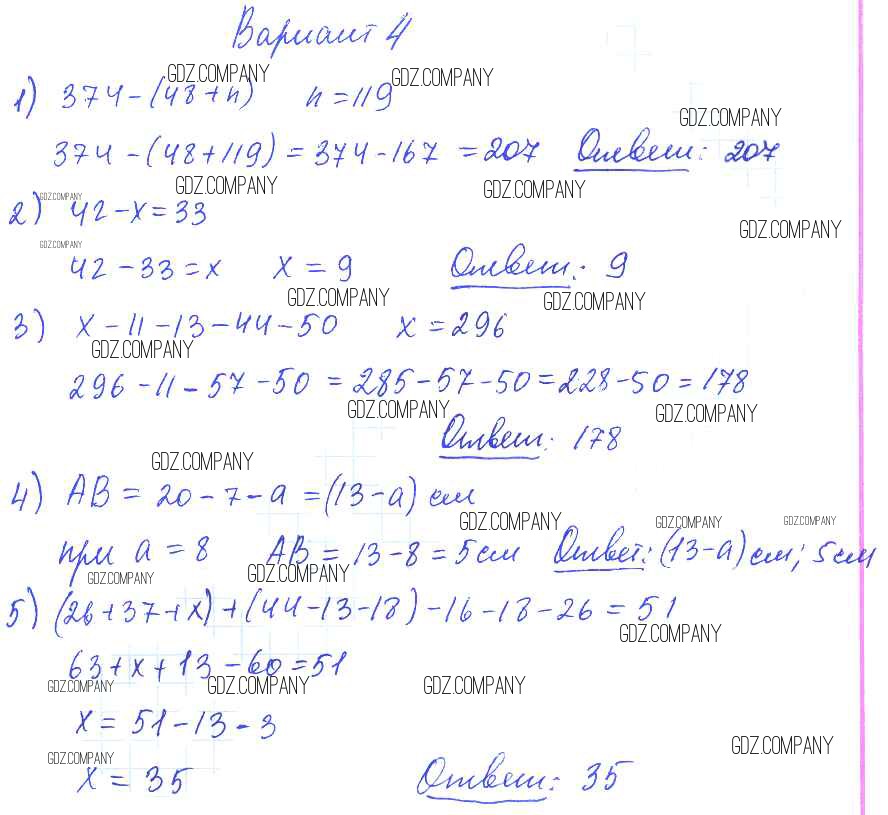 Вариант 4
GDZ.COMPANY GDZ.COMPANY
1) 374-(48+n) n=119
GDZ.COMPANY
374-(48+119)=374-167=207 Ответ: 207
GDZ.COMPANY GDZ.COMPANY
GDZ.COMPANY
2) 42-x=33
GDZ.COMPANY
GDZ.COMPANY
42-33=x x=9 Ответ: 9
GDZ.COMPANY GDZ.COMPANY
3) x-11-13-44-50 x=296
GDZ.COMPANY
296-11-57-50=285-57-50=228-50=178
GDZ.COMPANY GDZ.COMPANY
Ответ: 178
GDZ.COMPANY
4) AB=20-7-a=(13-a) см
GDZ.COMPANY GDZ.COMPANY GDZ.COMPANY
при a=8 AB=13-8=5см Ответ: (13-a)см; 5см
GDZ.COMPANY GDZ.COMPANY
5) (26+37+x)+(44-13-18)-16-18-26=51
GDZ.COMPANY
63+x+13-60=51
GDZ.COMPANY GDZ.COMPANY GDZ.COMPANY
x=51-13-3
GDZ.COMPANY
GDZ.COMPANY
x=35 Ответ: 35